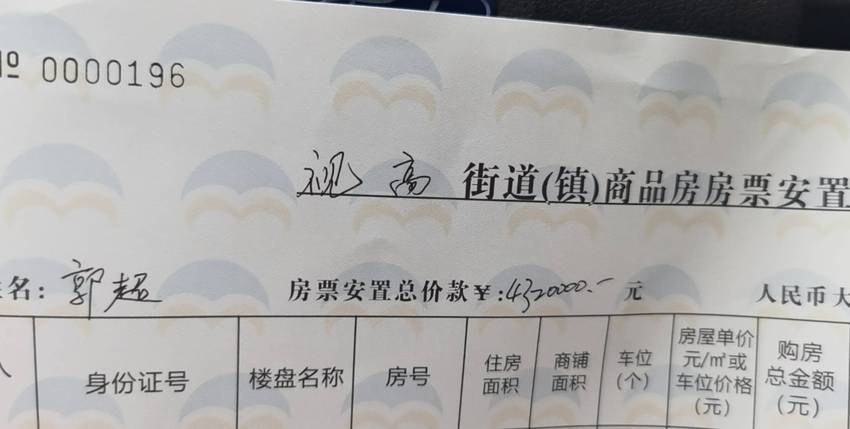 № 0000196
视高 街道(镇)商品房房票安置
姓名: 郭超 房票安置总价款¥:4320000.- 元 人民币大
人 身份证号 楼盘名称 房号 住房面积 商铺面积 车位(个) 房屋单价元/㎡或车位价格(元) 购房总金额(元)